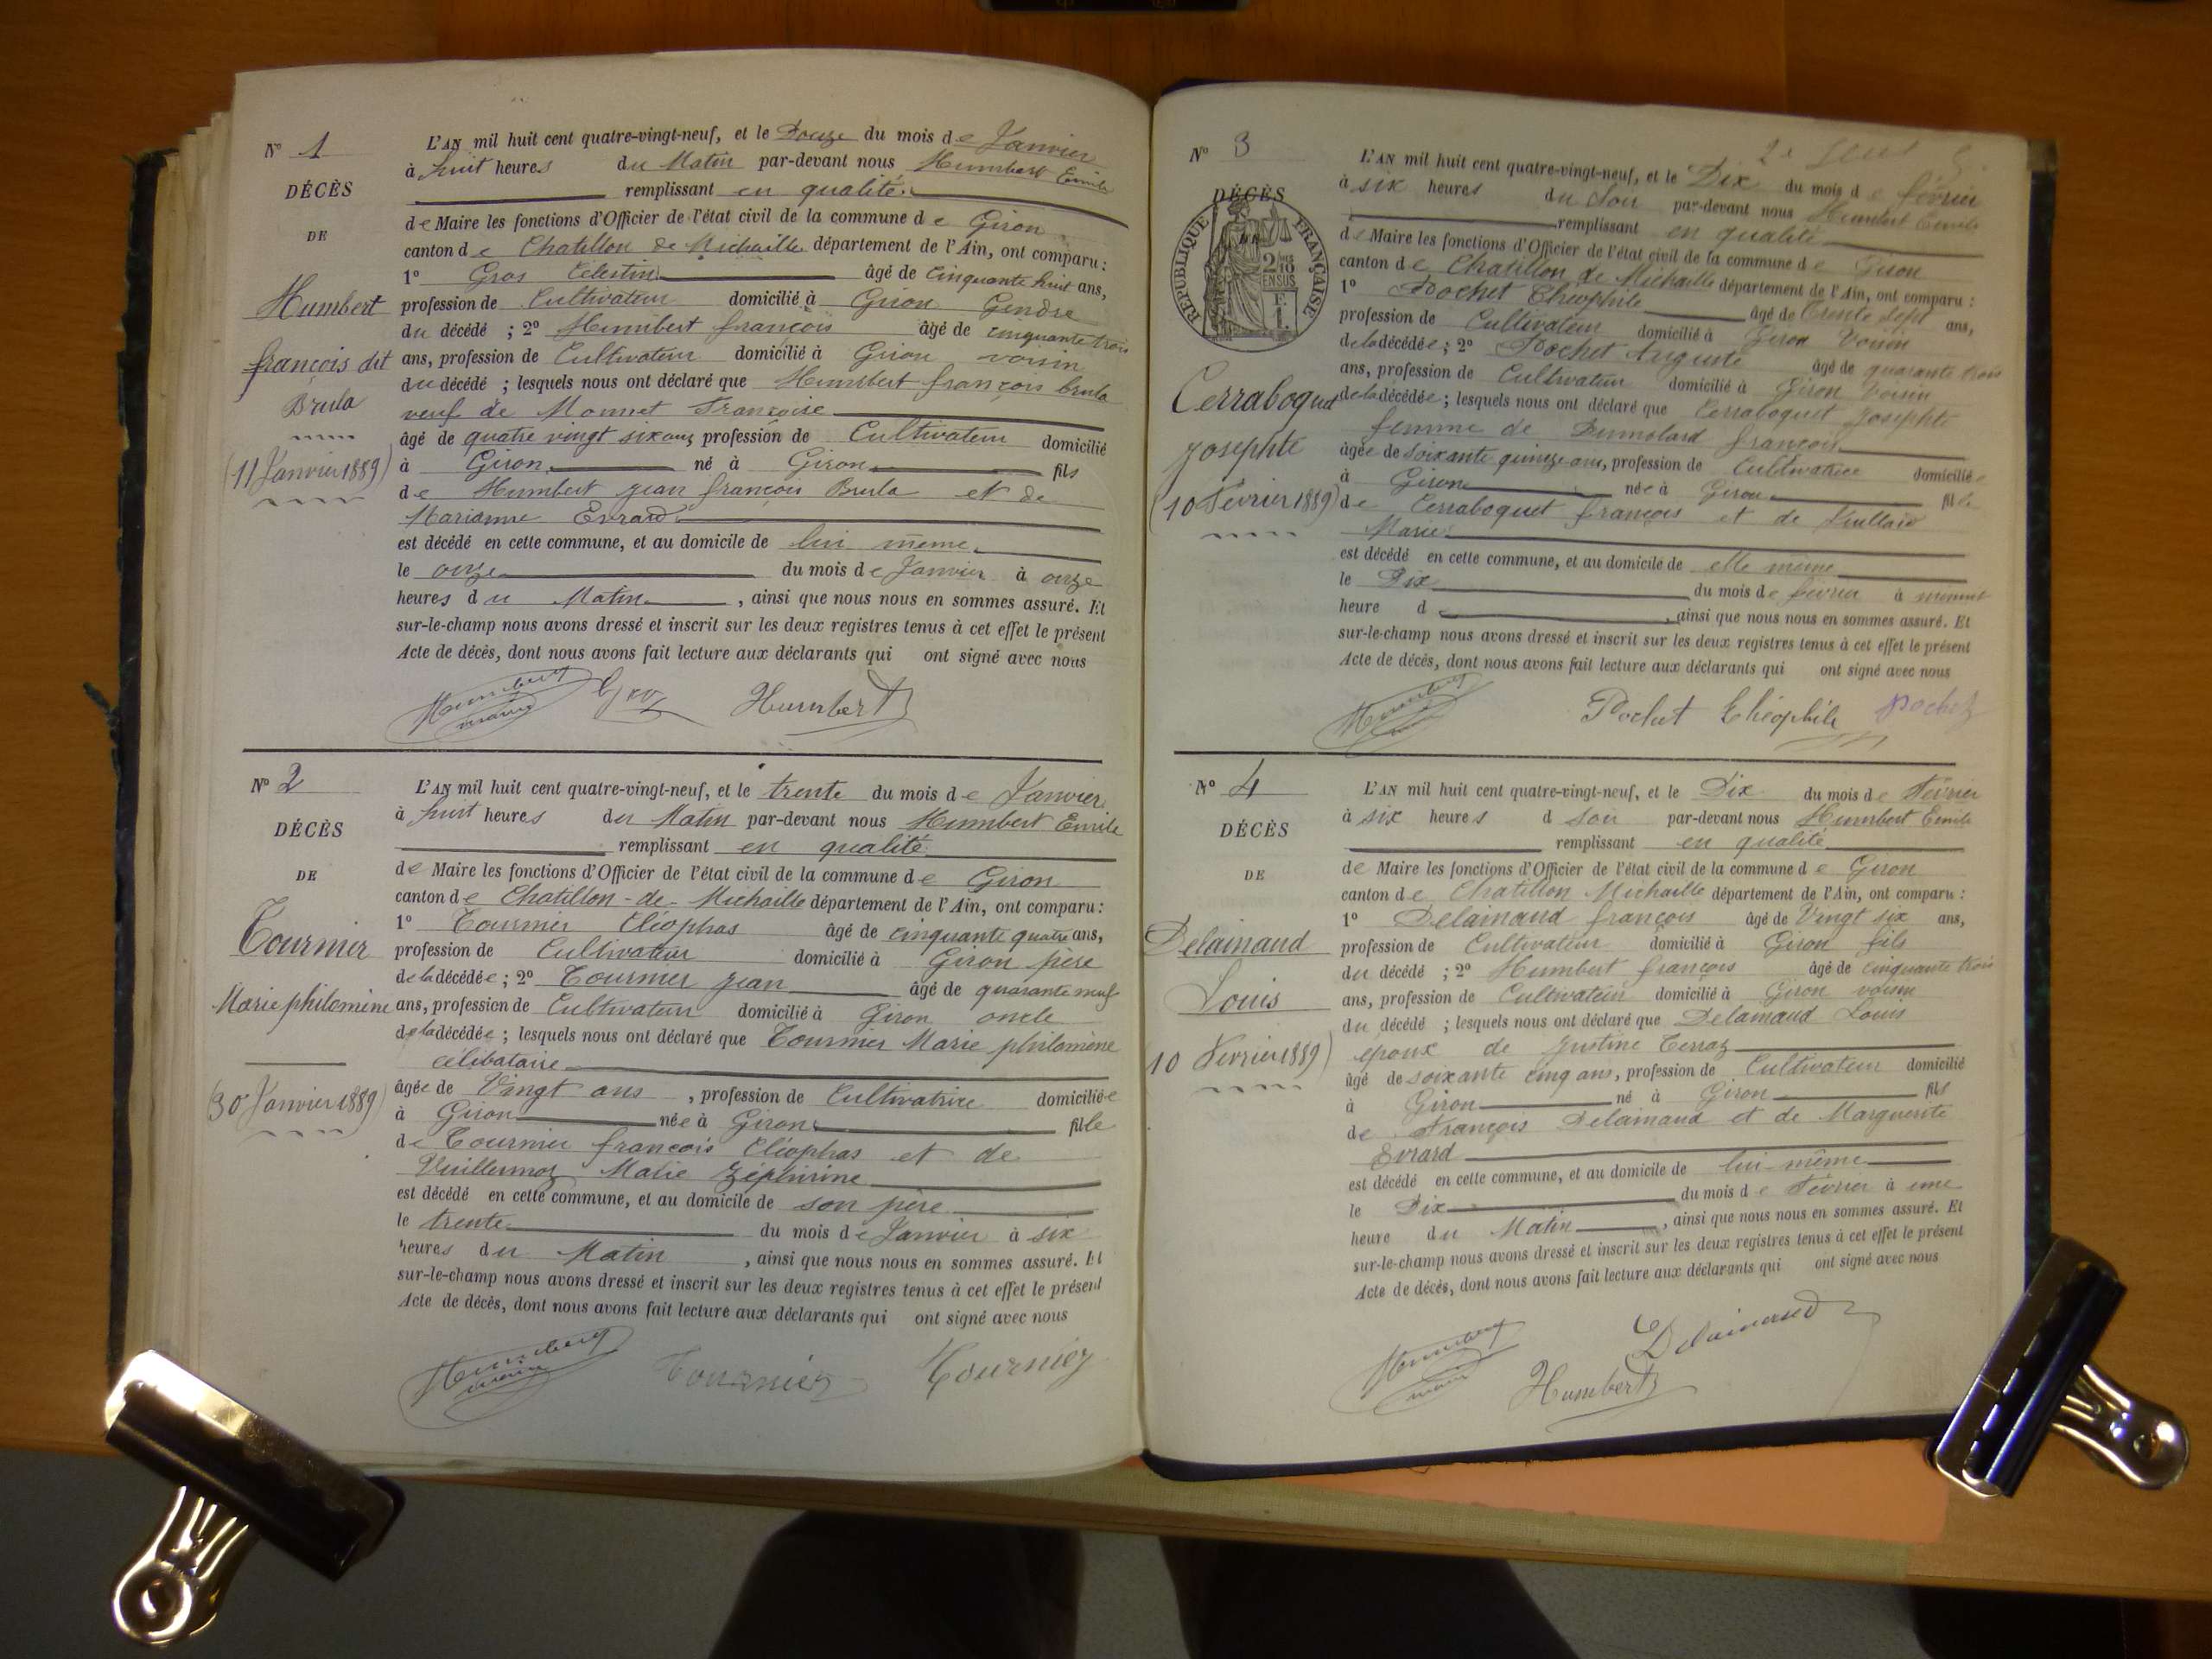 N° 1
DÉCÈS
DE
Humbert
françois dit
Brula
(11 Janvier 1889)
L'AN mil huit cent quatre-vingt-neuf, et le Douze du mois de Janvier
à huit heures du Matin par-devant nous Humbert Emile
remplissant en qualité
de Maire les fonctions d'Officier de l'état civil de la commune de Giron
canton de Chatillon de Michaille département de l'Ain, ont comparu :
1° Gros Célestin âgé de cinquante huit ans,
profession de Cultivateur domicilié à Giron Gendre
du décédé ; 2° Humbert françois âgé de cinquante trois
ans, profession de Cultivateur domicilié à Giron voisin
du décédé ; lesquels nous ont déclaré que Humbert françois brula
veuf de Monnet Françoise
âgé de quatre vingt six ans profession de Cultivateur domicilié
à Giron né à Giron fils
de Humbert jean françois Brula et de
Marianne Evrard
est décédé en cette commune, et au domicile de lui meme
le onze du mois de Janvier à onze
heures du Matin , ainsi que nous nous en sommes assuré. Et
sur-le-champ nous avons dressé et inscrit sur les deux registres tenus à cet effet le présent
Acte de décès, dont nous avons fait lecture aux déclarants qui ont signé avec nous
Humbert Gros Humbert
maire
N° 2
DÉCÈS
DE
Tournier
Marie philomène
(30 Janvier 1889)
L'AN mil huit cent quatre-vingt-neuf, et le trente du mois de Janvier
à huit heures du Matin par-devant nous Humbert Emile
remplissant en qualité
de Maire les fonctions d'Officier de l'état civil de la commune de Giron
canton de Chatillon-de-Michaille département de l'Ain, ont comparu :
1° Tournier Cléophas âgé de cinquante quatre ans,
profession de Cultivateur domicilié à Giron père
de la décédée ; 2° Tournier jean âgé de quarante neuf
ans, profession de Cultivateur domicilié à Giron oncle
de la décédée ; lesquels nous ont déclaré que Tournier Marie philomène
célibataire
âgée de Vingt ans , profession de Cultivatrice domiciliée
à Giron née à Giron fille
de Tournier françois Cléophas et de
Vuillermoz Marie Zéphirine
est décédé en cette commune, et au domicile de son père
le trente du mois de Janvier à six
heures du Matin , ainsi que nous nous en sommes assuré. Et
sur-le-champ nous avons dressé et inscrit sur les deux registres tenus à cet effet le présent
Acte de décès, dont nous avons fait lecture aux déclarants qui ont signé avec nous
Humbert Tournier Tournier
maire
N° 3
DÉCÈS
RÉPUBLIQUE FRANÇAISE
Cerraboquet
Josephte
(10 Février 1889)
L'AN mil huit cent quatre-vingt-neuf, et le Dix du mois de février
à six heures du Soir par-devant nous Humbert Emile
remplissant en qualité
de Maire les fonctions d'Officier de l'état civil de la commune de Giron
canton de Chatillon de Michaille département de l'Ain, ont comparu :
1° Pochet Théophile âgé de Trente Sept ans,
profession de Cultivateur domicilié à Giron Voisin
de la décédée ; 2° Pochet Auguste âgé de quarante trois
ans, profession de Cultivateur domicilié à Giron Voisin
de la décédée ; lesquels nous ont déclaré que Cerraboquet Josephte
femme de Dumolard françois
âgée de soixante quinze ans, profession de Cultivatrice domiciliée
à Giron née à Giron fille
de Cerraboquet françois et de
Marie
est décédé en cette commune, et au domicile de elle même
le Dix du mois de février à minuit
heure d , ainsi que nous nous en sommes assuré. Et
sur-le-champ nous avons dressé et inscrit sur les deux registres tenus à cet effet le présent
Acte de décès, dont nous avons fait lecture aux déclarants qui ont signé avec nous
Humbert Pochet Théophile Pochet
N° 4
DÉCÈS
DE
Delainaud
Louis
10 Février 1889)
L'AN mil huit cent quatre-vingt-neuf, et le Dix du mois de Février
à six heures d Soir par-devant nous Humbert Emile
remplissant en qualité
de Maire les fonctions d'Officier de l'état civil de la commune de Giron
canton de Chatillon Michaille département de l'Ain, ont comparu :
1° Delainaud françois âgé de Vingt six ans,
profession de Cultivateur domicilié à Giron fils
du décédé ; 2° Humbert françois âgé de cinquante trois
ans, profession de Cultivateur domicilié à Giron voisin
du décédé ; lesquels nous ont déclaré que Delainaud Louis
époux de Justine Cerraz
âgé de soixante cinq ans, profession de Cultivateur domicilié
à Giron né à Giron fils
de François Delainaud et de Marguerite
Evrard
est décédé en cette commune, et au domicile de lui-même
le Dix du mois de Février à une
heure du Matin , ainsi que nous nous en sommes assuré. Et
sur-le-champ nous avons dressé et inscrit sur les deux registres tenus à cet effet le présent
Acte de décès, dont nous avons fait lecture aux déclarants qui ont signé avec nous
Humbert Humbert Delainaud
maire